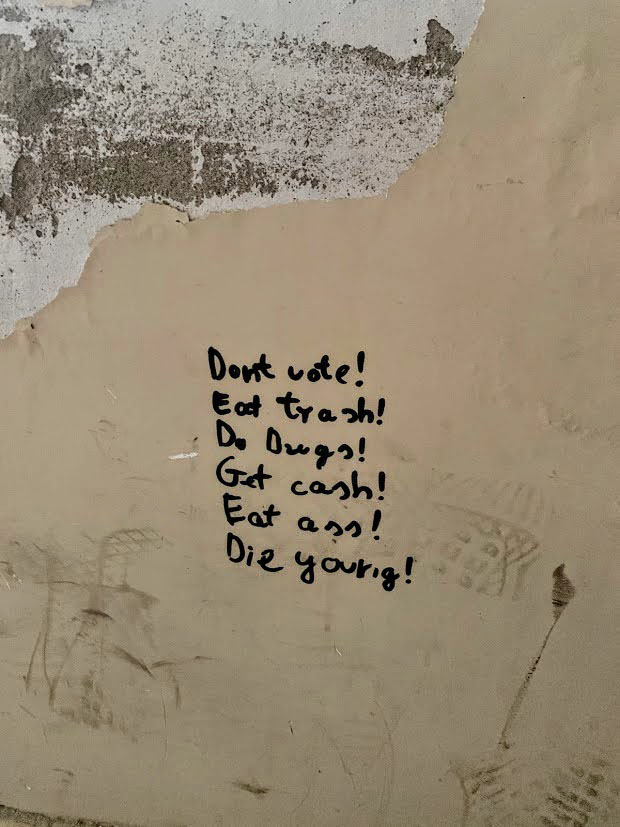 Dont vote!
Eat trash!
Do Drugs!
Get cash!
Eat ass!
Die young!